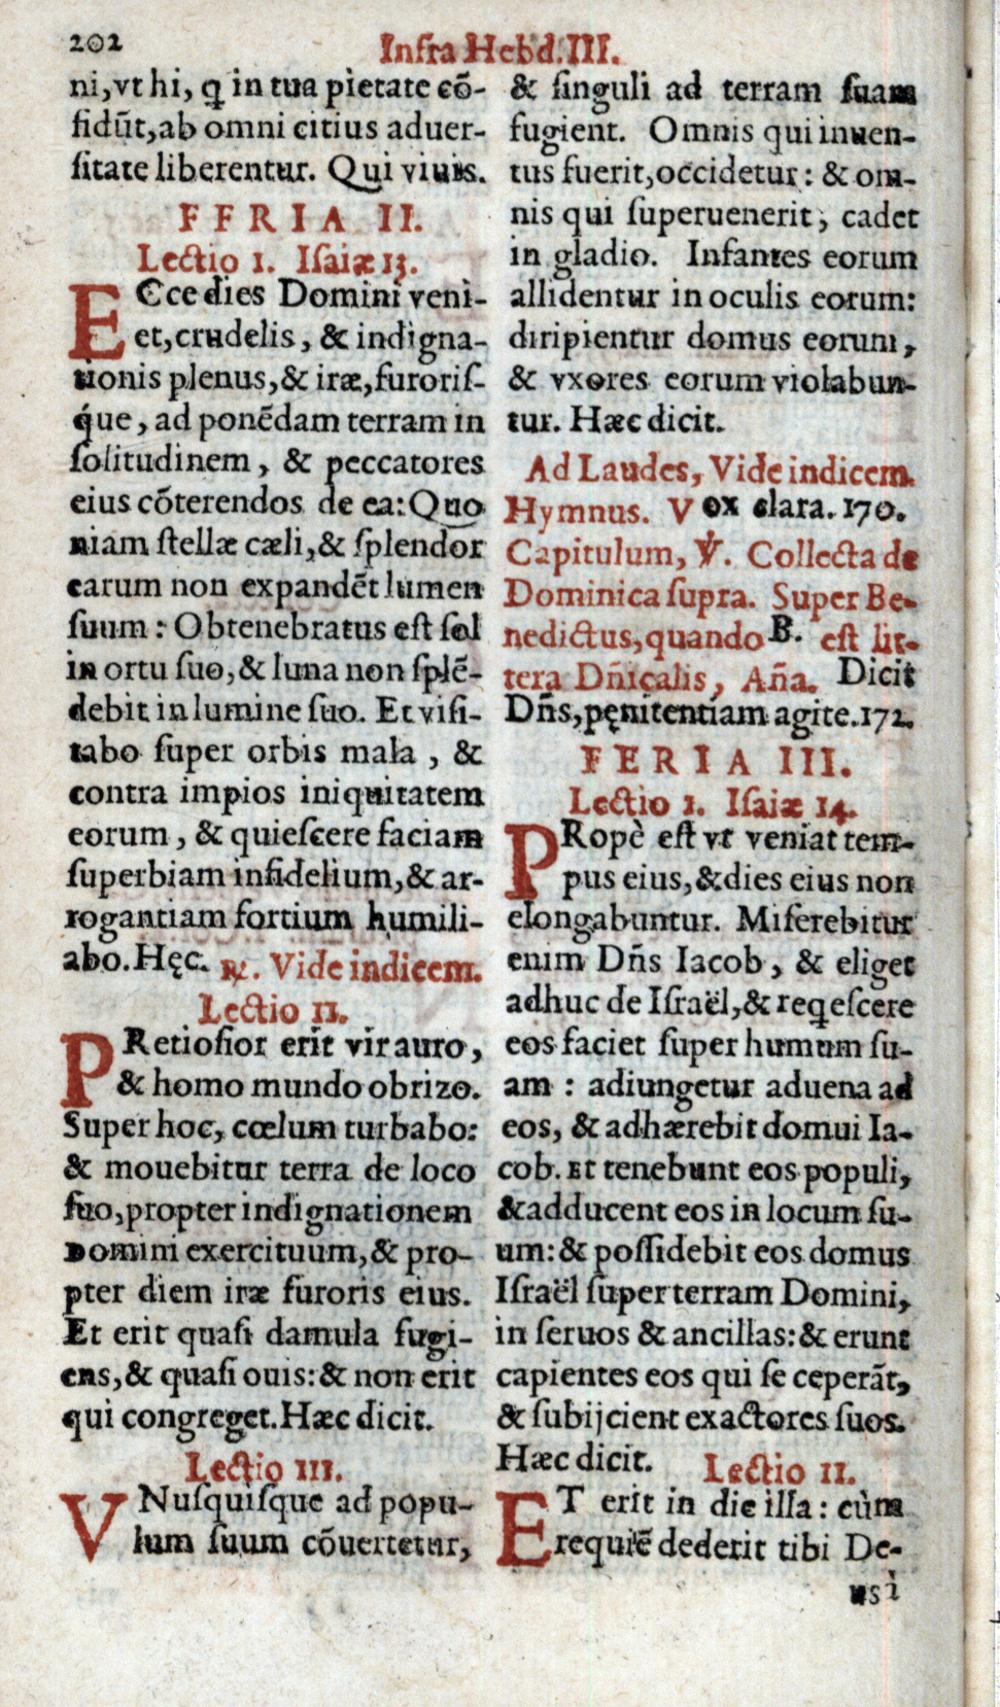 202
Infra Hebd. III.
ni, vt hi, q̃ in tua pietate cõ-
fidũt, ab omni citius aduer-
ſitate liberentur. Qui viuis.
FFRIA II.
Lectio I. Iſaiæ 13.
ECce dies Domini veni-
et, crudelis, & indigna-
tionis plenus, & iræ, furoriſ-
q́ue, ad ponẽdam terram in
ſolitudinem, & peccatores
eius cõterendos de ea: Quo
niam ſtellæ cæli, & ſplendor
earum non expandẽt lumen
ſuum: Obtenebratus eſt ſol
in ortu ſuo, & luna non ſplẽ-
debit in lumine ſuo. Et viſi-
tabo ſuper orbis mala, &
contra impios iniquitatem
eorum, & quieſcere faciam
ſuperbiam infidelium, & ar-
rogantiam fortium humili-
abo. Hęc. ℟. Vide indicem.
Lectio II.
PRetioſior erit vir auro,
& homo mundo obrizo.
Super hoc, cœlum turbabo:
& mouebitur terra de loco
ſuo, propter indignationem
Domini exercituum, & pro-
pter diem iræ furoris eius.
Et erit quaſi damula fugi-
ens, & quaſi ouis: & non erit
qui congreget. Hæc dicit.
Lectio III.
VNuſquiſque ad popu-
lum ſuum cõuertetur,
& ſinguli ad terram ſuam
fugient. Omnis qui inuen-
tus fuerit, occidetur: & om-
nis qui ſuperuenerit, cadet
in gladio. Infantes eorum
allidentur in oculis eorum:
diripientur domus eorum,
& vxores eorum violabun-
tur. Hæc dicit.
Ad Laudes, Vide indicem.
Hymnus. Vox clara. 170.
Capitulum, ℣. Collecta de
Dominica ſupra. Super Be-
nedictus, quando B. eſt lit-
tera Dñicalis, Aña. Dicit
Dñs, pęnitentiam agite. 172.
FERIA III.
Lectio I. Iſaiæ 14.
PRopè eſt vt veniat tem-
pus eius, & dies eius non
elongabuntur. Miſerebitur
enim Dñs Iacob, & eliget
adhuc de Iſraël, & reqeſcere
eos faciet ſuper humum ſu-
am: adiungetur aduena ad
eos, & adhærebit domui Ia-
cob. Et tenebunt eos populi,
& adducent eos in locum ſu-
um: & poſſidebit eos domus
Iſraël ſuper terram Domini,
in ſeruos & ancillas: & erunt
capientes eos qui ſe ceperãt,
& ſubijcient exactores ſuos.
Hæc dicit. Lectio II.
ET erit in die illa: cùm
requiẽ dederit tibi De-
us ì